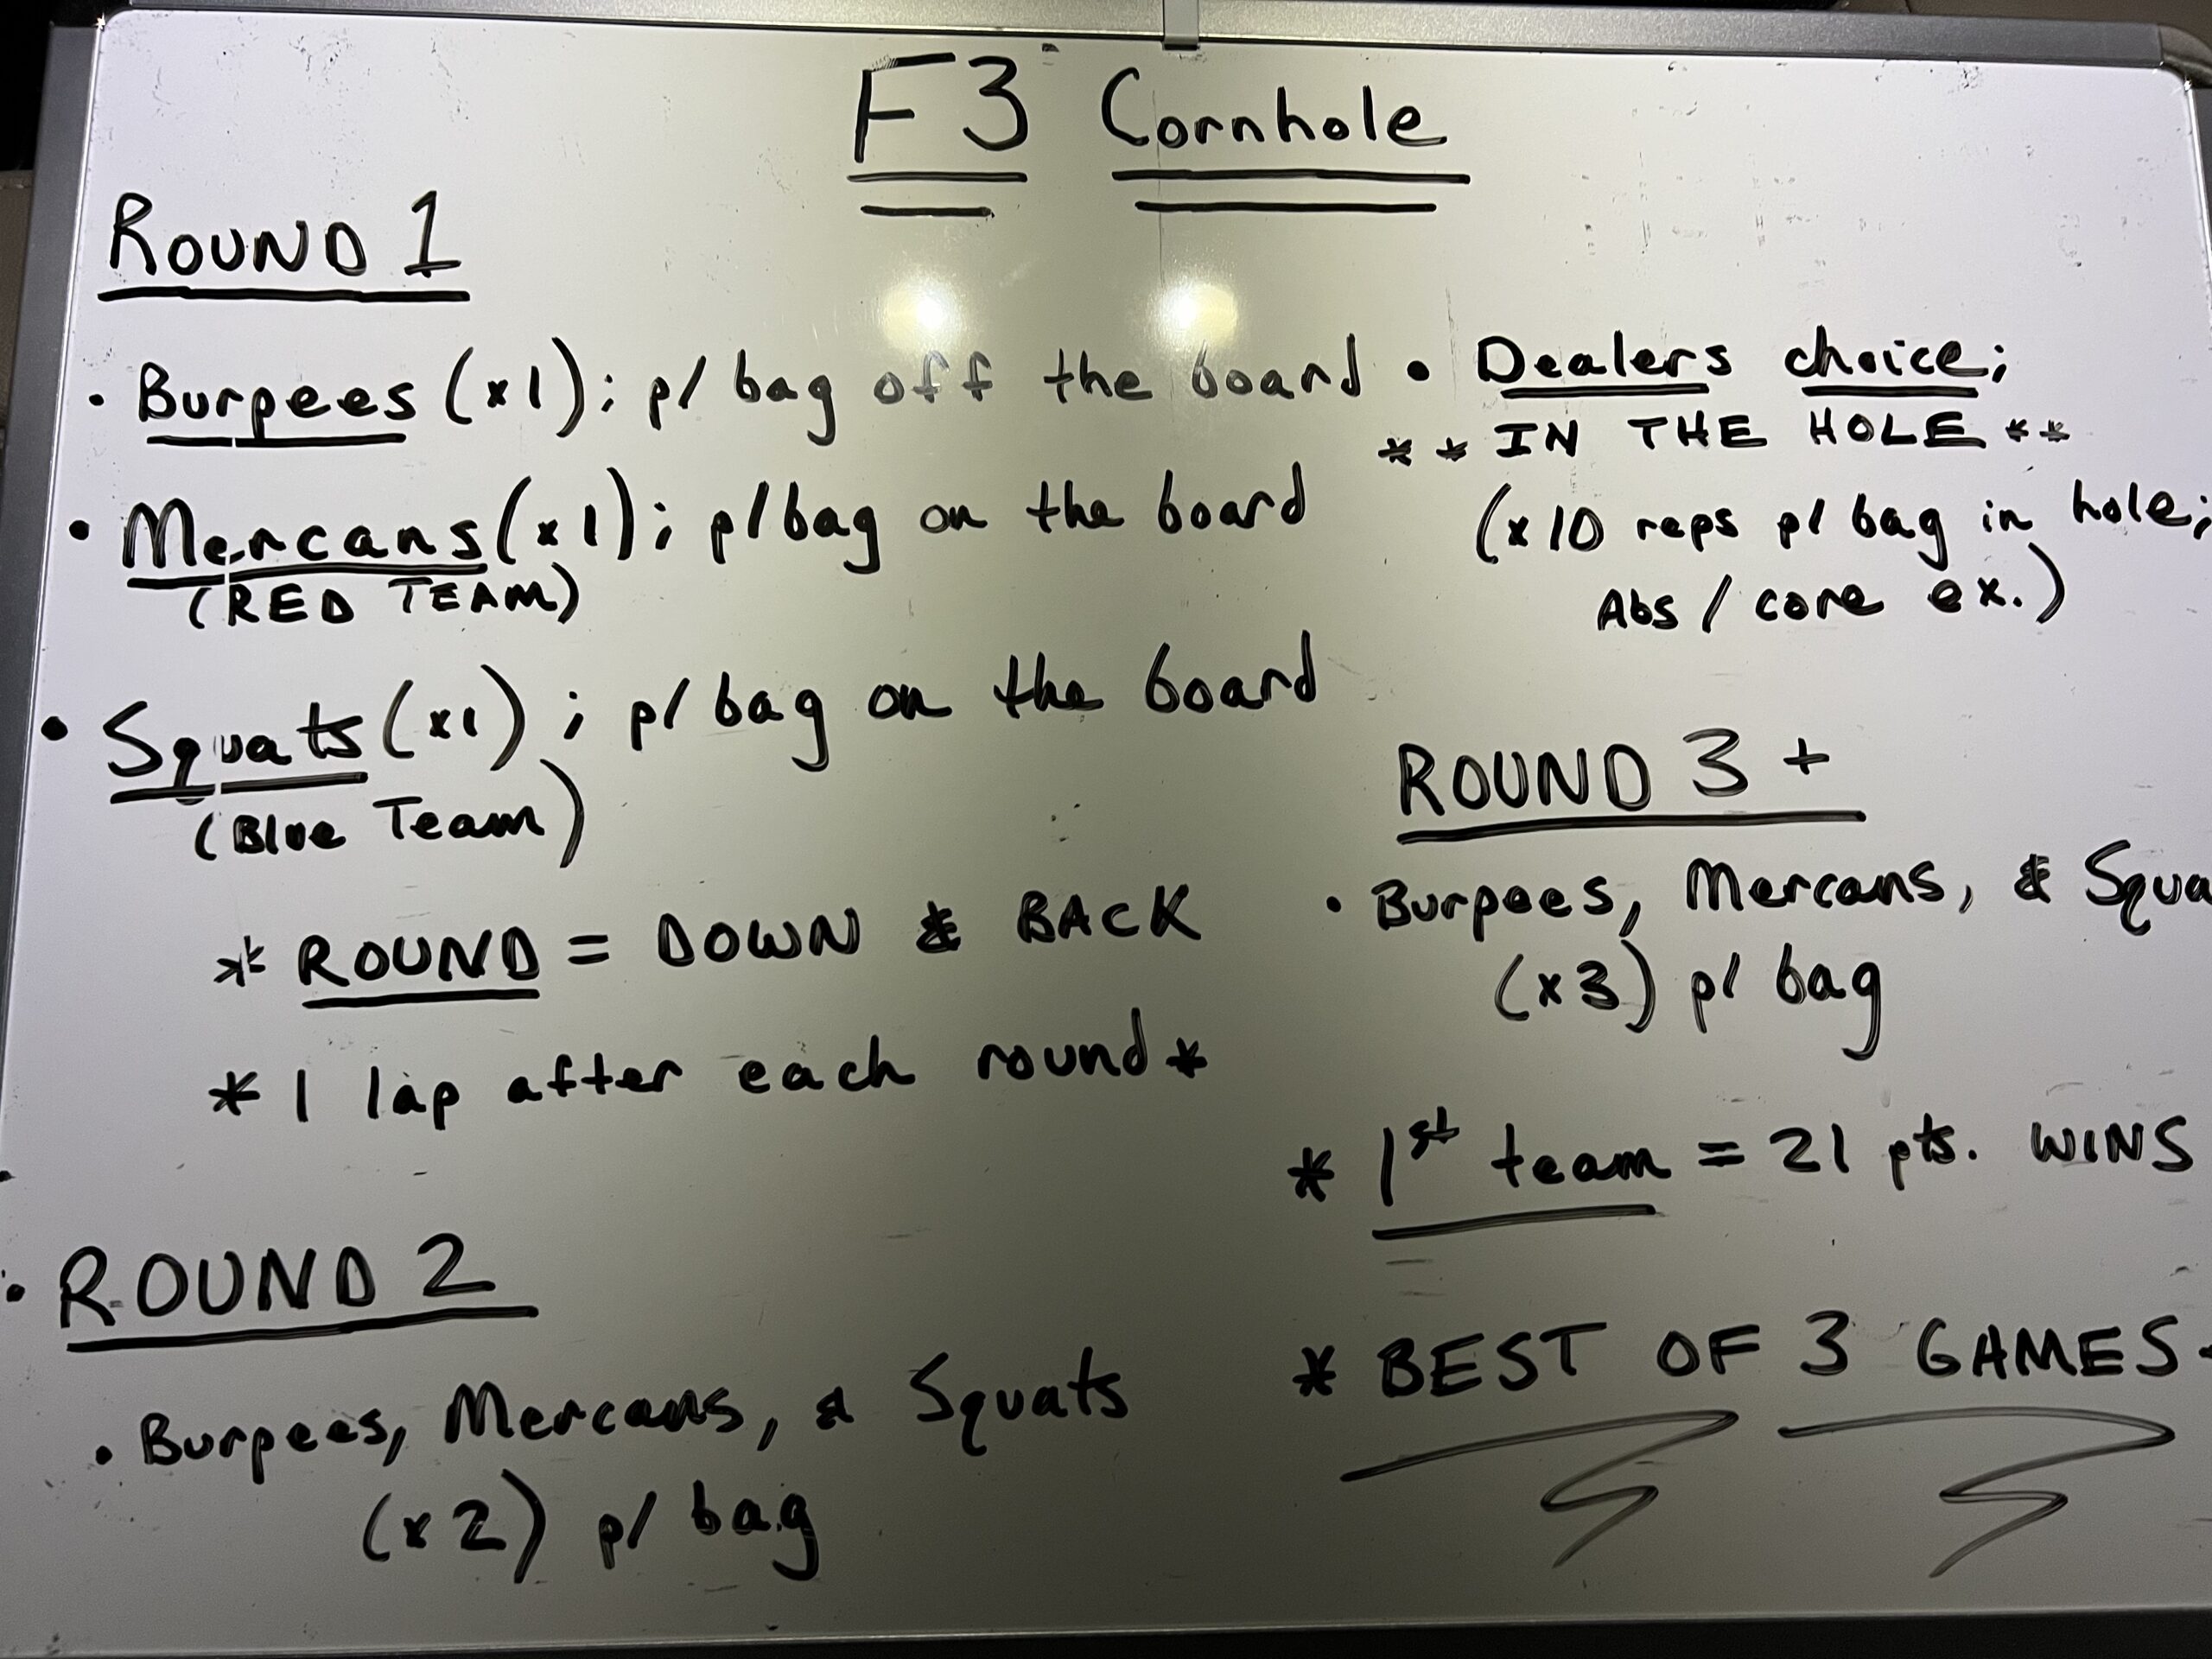 F3 Cornhole
ROUND 1
• Burpees (x1); p/ bag off the board
• Mercans (x1); p/bag on the board
(RED TEAM)
• Squats (x1) ; p/ bag on the board
(Blue Team)
* ROUND = DOWN & BACK
* 1 lap after each round *
• ROUND 2
• Burpees, Mercans, & Squats
(x2) p/ bag
• Dealers choice;
** IN THE HOLE **
(x10 reps p/ bag in hole;
Abs / core ex.)
ROUND 3 +
• Burpees, Mercans, & Squa
(x3) p/ bag
* 1st team = 21 pts. WINS
* BEST OF 3 GAMES